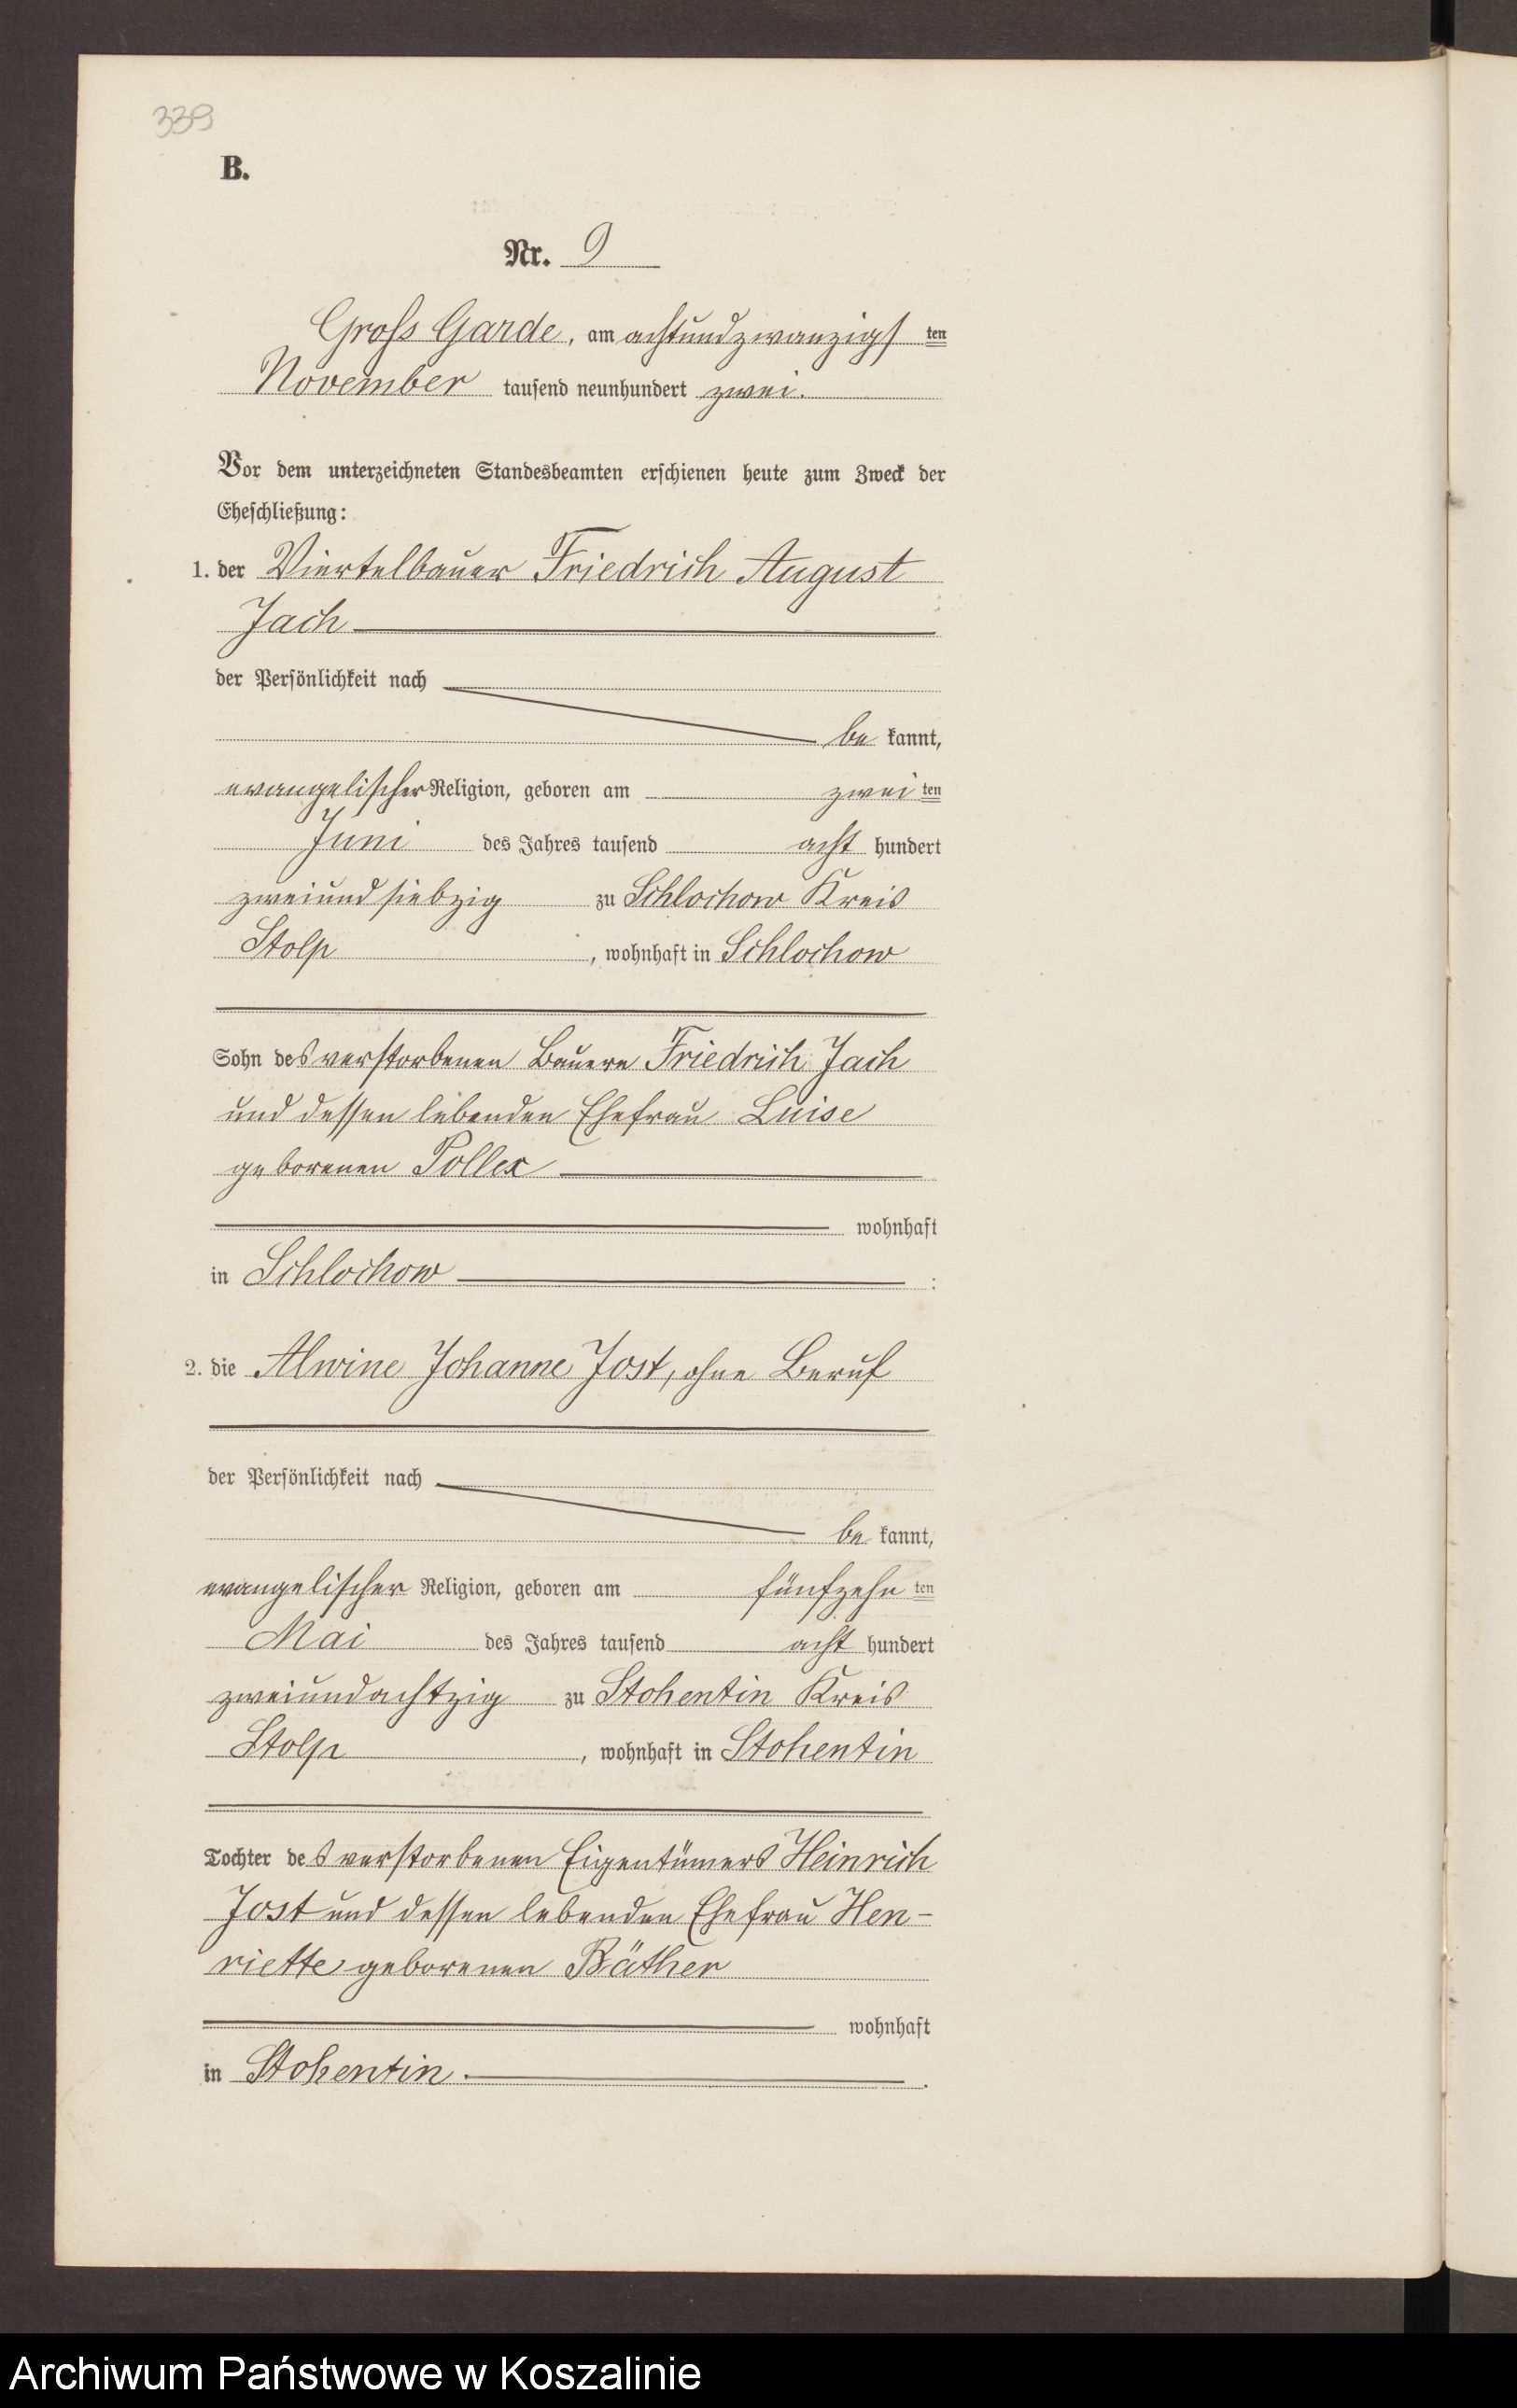 339
B.
Nr. 9
Groß Garde, am achtundzwanzigsten
November tausend neunhundert zwei.
Vor dem unterzeichneten Standesbeamten erschienen heute zum Zweck der
Eheschließung:
1. der Viertelbauer Friedrich August
Jach
der Persönlichkeit nach
be kannt,
evangelischer Religion, geboren am zwei ten
Juni des Jahres tausend acht hundert
zweiundsiebzig zu Schlochow Kreis
Stolp, wohnhaft in Schlochow
Sohn des verstorbenen Bauern Friedrich Jach
und dessen lebenden Ehefrau Luise
geborenen Pollex
wohnhaft
in Schlochow :
2. die Alwine Johanne Jost, ohne Beruf
der Persönlichkeit nach
be kannt,
evangelischer Religion, geboren am fünfzehn ten
Mai des Jahres tausend acht hundert
zweiundachtzig zu Stohentin Kreis
Stolp, wohnhaft in Stohentin
Tochter des verstorbenen Eigentümers Heinrich
Jost und dessen lebenden Ehefrau Hen-
riette geborenen Räther
wohnhaft
in Stohentin.
Archiwum Państwowe w Koszalinie